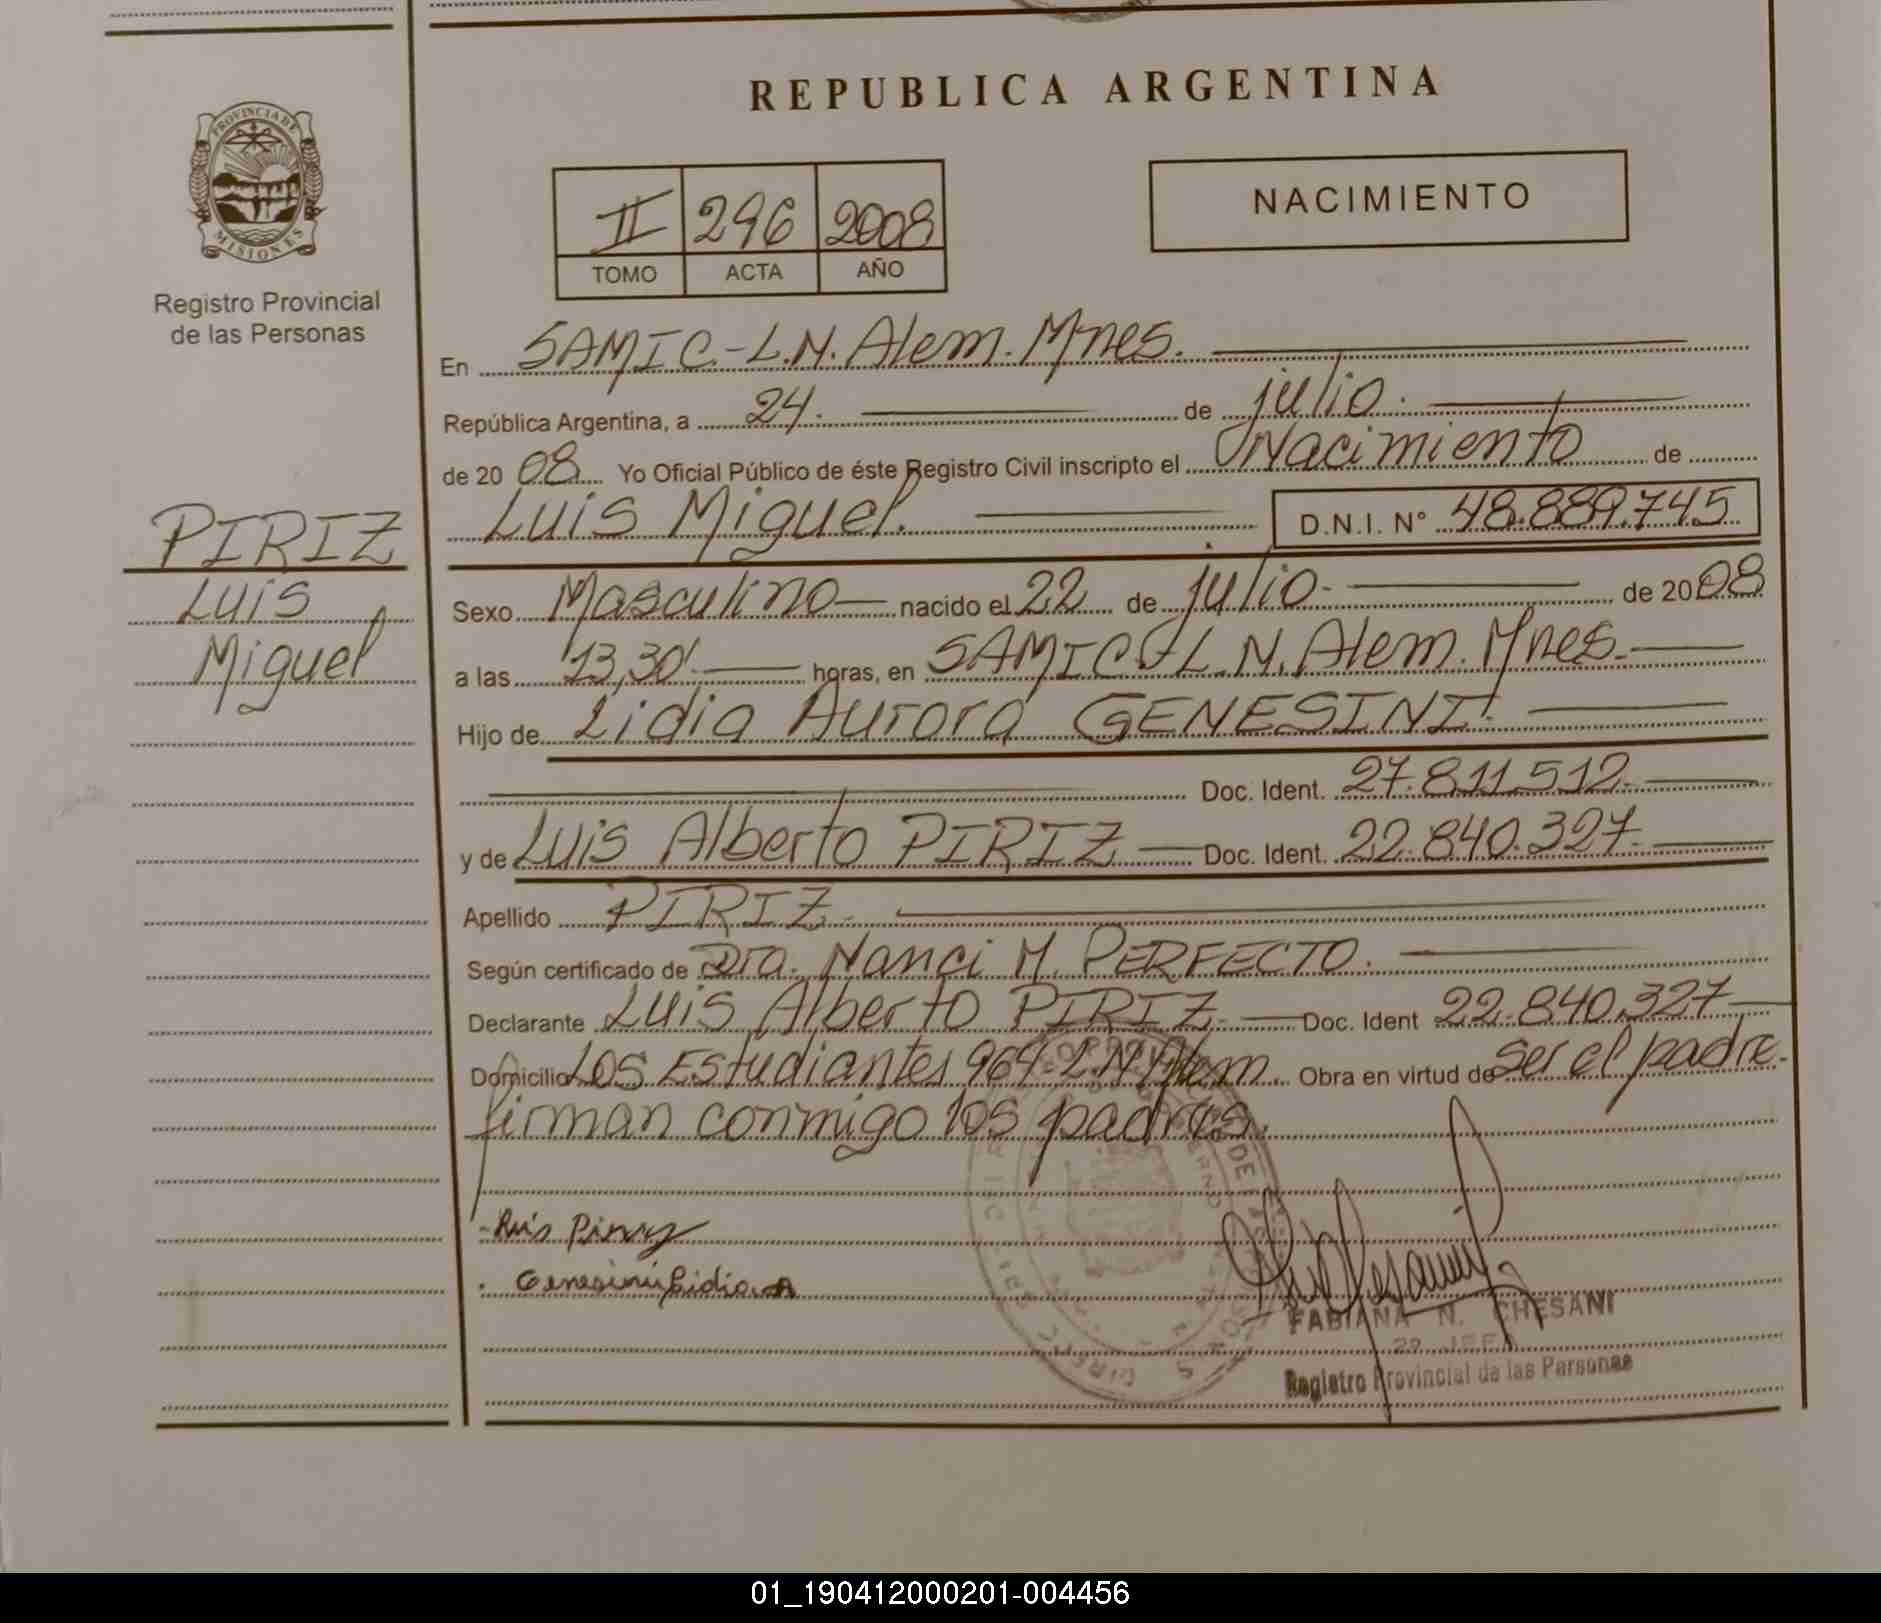 REPUBLICA ARGENTINA
PROVINCIA DE
MISIONES
Registro Provincial
de las Personas
II 296 2008
TOMO ACTA AÑO
NACIMIENTO
PIRIZ
Luis
Miguel
En SAMIC.-L.N. Alem. Mnes.
República Argentina, a 24. de julio.
de 2008 Yo Oficial Público de éste Registro Civil inscripto el Nacimiento de
Luis Miguel. D.N.I. N° 48.889.745
Sexo Masculino nacido el 22 de julio de 2008
a las 13,30 horas, en SAMIC.-L.N. Alem. Mnes.
Hijo de Lidia Aurora GENESINI.
Doc. Ident. 27.811.512
y de Luis Alberto PIRIZ Doc. Ident. 22.840.327
Apellido PIRIZ
Según certificado de Dra. Nanci M. PERFECTO.
Declarante Luis Alberto PIRIZ Doc. Ident 22.840.327
Domicilio Los Estudiantes 964 L N Alem. Obra en virtud de ser el padre.
firman conmigo los padres.
Luis Piriz
Genesini Lidia A
FABIANA N. CHESANI
JEFA
Registro Provincial de las Personas
01_190412000201-004456